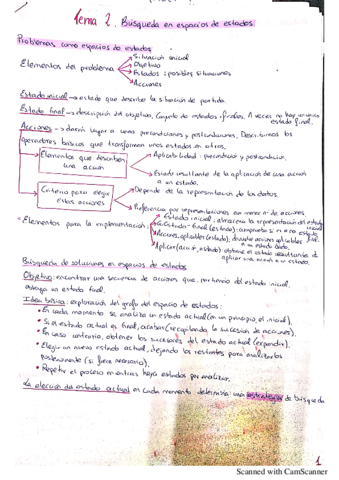 Tema 2. Búsqueda en espacios de estados.
Problemas como espacios de estados
Elementos del problema
Situación inicial
Objetivo
Estados: posibles situaciones
Acciones
Estado inicial → estado que describe la situación de partida.
Estado final → descripción del objetivo. Conjunto de estados finales. A veces no hay un único estado final.
Acciones → darán lugar a unas precondiciones y postcondiciones. Describimos los
operadores básicos que transforman unos estados en otros.
Elementos que describen una acción
Aplicabilidad: precondición y postcondición.
Estado resultante de la aplicación de una acción a un estado.
Criterio para elegir estas acciones
Depende de la representación de los datos.
Preferencia por representaciones con menor nº de acciones.
Elementos para la implementación:
Estado inicial: almacena la representación del estado inicial
Es estado-final (estado): comprueba si es o no estado final.
Acciones aplicables (estado): acciones aplicables a un estado dado.
Aplicar (acción, estado): obtiene el estado resultante de aplicar una acción a un estado.
Búsqueda de soluciones en espacios de estados
Objetivo: encontrar una secuencia de acciones que, partiendo del estado inicial,
obtenga un estado final.
Idea básica: exploración del grafo del espacio de estados:
• En cada momento se analiza un estado actual (en un principio, el inicial).
• Si el estado actual es final, acabar (recopilando la sucesión de acciones).
• En caso contrario, obtener los sucesores del estado actual (expandir).
• Elegir un nuevo estado actual, dejando los restantes para analizarlos
posteriormente (si fuera necesario).
• Repetir el proceso mientras haya estados por analizar.
La elección del estado actual en cada momento determina una estrategia de búsqueda
1
Scanned with CamScanner